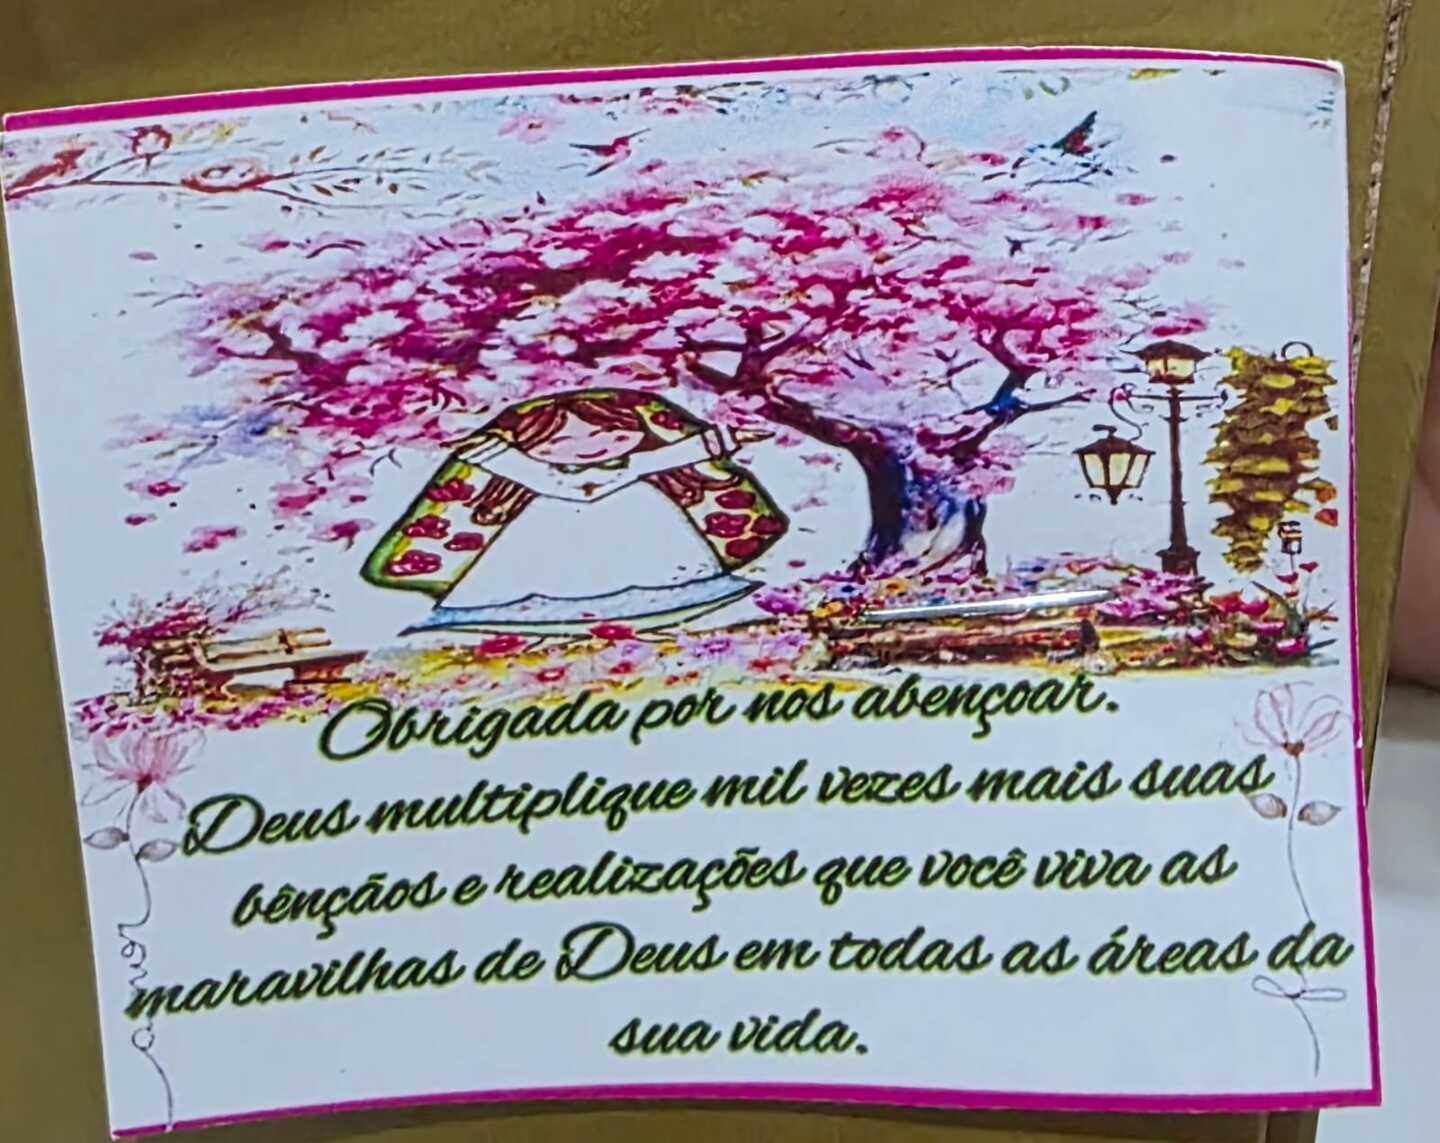 Obrigada por nos abençoar.
Deus multiplique mil vezes mais suas
bênçãos e realizações que você viva as
maravilhas de Deus em todas as áreas da
sua vida.
amor